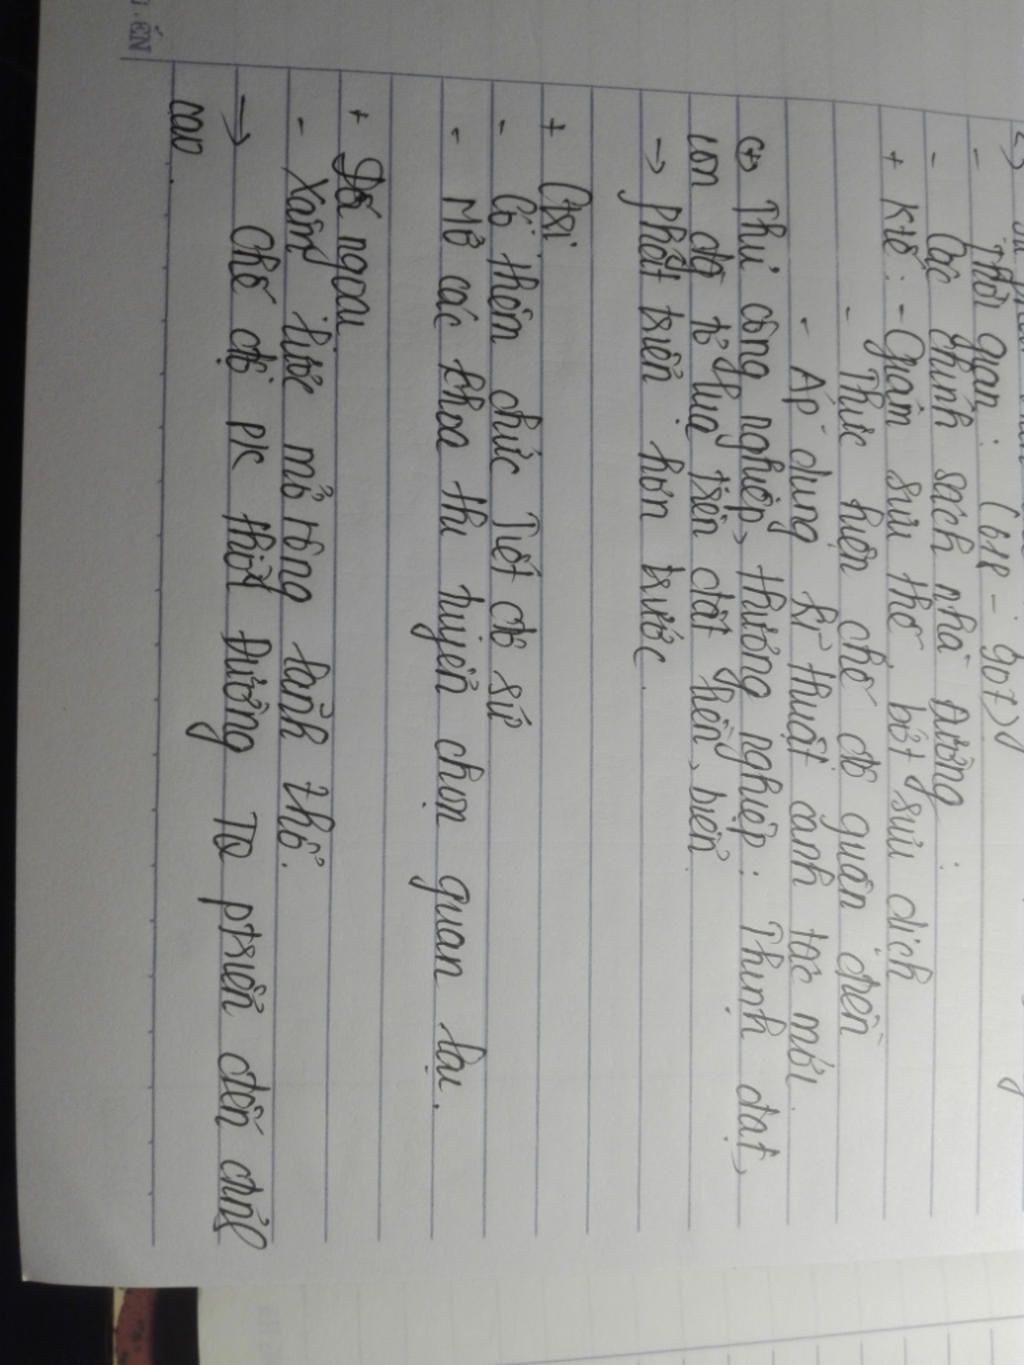 - Thời gian: (618 - 907)
- Các chính sách nhà Đường:
+ Ktế: - Giảm sưu thế, bớt sưu dịch
- Thực hiện chế độ quân điền
- Áp dụng kĩ thuật canh tác mới.
(+) Thủ công nghiệp, thương nghiệp: Thịnh đạt,
con đg tơ lụa trên đất liền, biển.
→ phát triển hơn trước.
+ Ctrị
- Có thêm chức Tiết độ sứ
- Mở các khoa thi tuyển chọn quan lại.
+ Đối ngoại
- Xâm lược mở rộng lãnh thổ.
→ Chế độ PK thời Đường TQ ptriển đến đỉnh
cao.